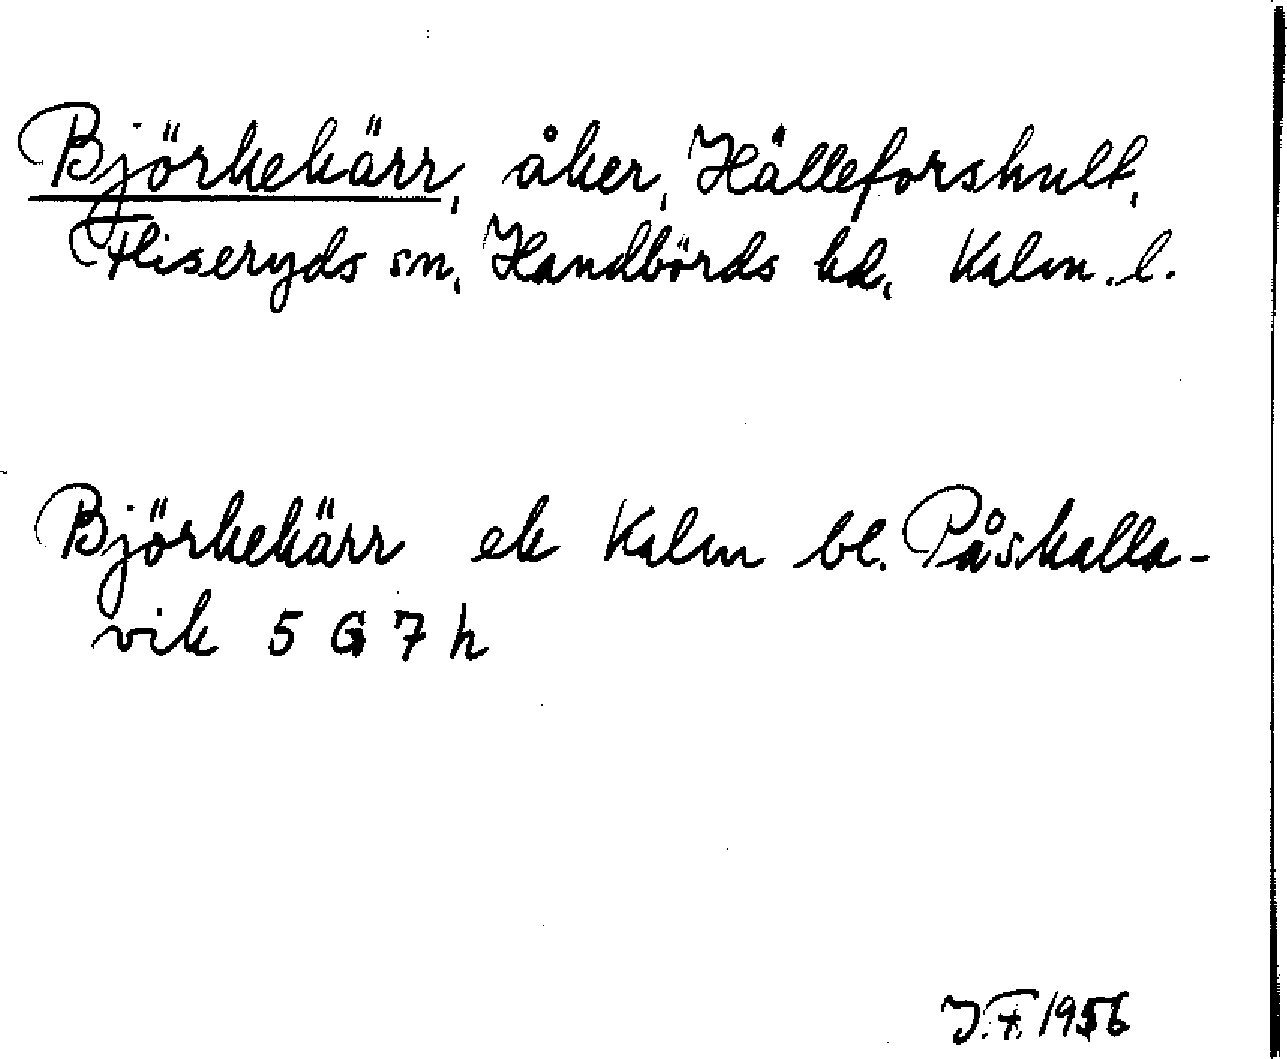 Björkekärr, åker, Hälleforshult,
Fliseryds sn, Handbörds hd, Kalm. l.
Björkekärr ek Kalm bl. Påskalla-
vik 5 G 7 h
J.F. 1956